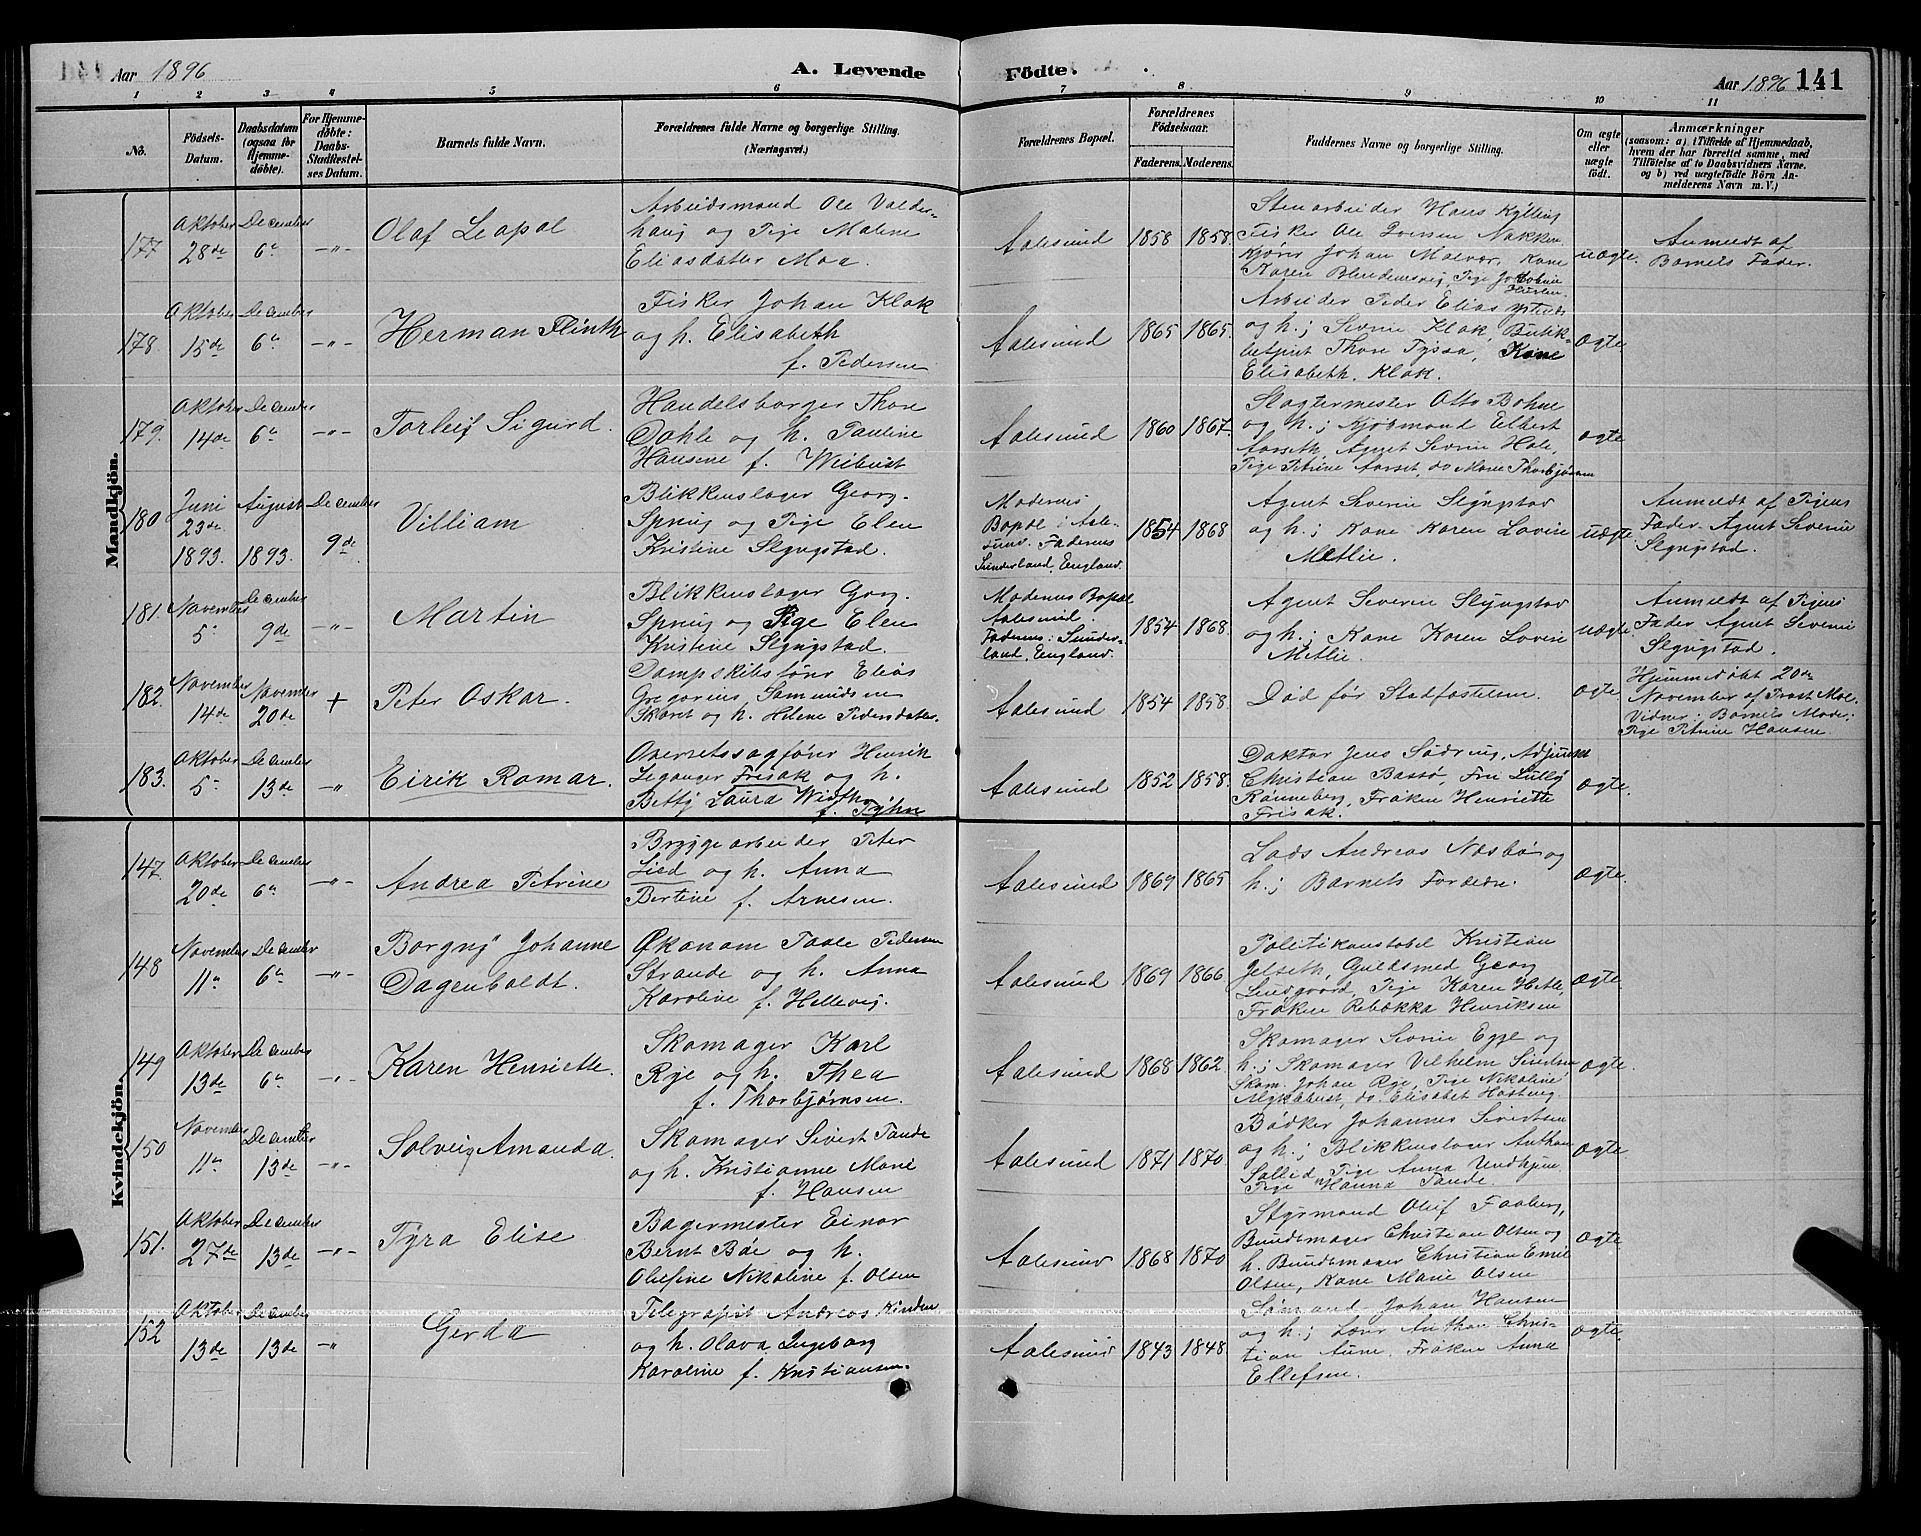 Aar 1896
A. Levende
Födte.
Aar 1896 141
1 2 3 4 5 6 7 8 9 10 11
No.
Födsels-
Datum.
Daabsdatum
(ogsaa for
Hjemme-
döbte).
For Hjemme-
döbte:
Daabs-
Stadfæstel-
ses Datum.
Barnets fulde Navn.
Forældrenes fulde Navne og borgerlige Stilling.
(Næringsvei.)
Forældrenes Bopæl.
Forældrenes
Födselsaar.
Faderens. Moderens.
Faddernes Navne og borgerlige Stilling.
Om ægte
eller
uægte
født.
Anmærkninger
(saasom: a) i Tilfælde af Hjemmedaab,
hvem der har forrettet samme, med
Tilföielse af to Daabsvidners Navne.
og b) ved uægtefödte Börn An-
melderens Navn m. V.)
Mandkjön.
177
Oktober
28de
December
6te
-"-
Olaf Leapol
Arbeidsmand Ole Valder-
haug og Pige Malene
Eliasdatter Moa.
Aalesund
1858
1858.
Stenarbeider Hans Kylling
Fisker Ole Iversen Nakken
Kjører Johan Malvær, Kone
Karen Blendemsvig, Pige
uægte.
Anmeldt af
Barnets Fader.
178.
Oktober
15de
December
6te
-"-
Herman Flinth
Fisker Johan Klok
og h. Elisabeth
f. Pedersen
Aalesund
1865
1865.
Arbeider Peder Elias
og h.; Severin Klok, Butik-
betjent Thore Tyssa, Kone
Elisabeth Klok.
ægte
179.
Oktober
14de
December
6te
-"-
Torleif Sigurd.
Handelsborger Thore
Dahle og h. Pauline
Hansine f. Weibust
Aalesund
1860
1867.
Slagtermester Otto Bohne
og h.; Kjøbmand Elbert
Aarseth, Agent Severin Hole,
Pige Petrine Aarset, do Marie Thorbjørnsen
ægte
180
Juni
23de
1893.
August
1893.
December
9de
Villiam
Blikkenslager Georg
Spring og Pige Elen
Kristine Slyngstad.
Moderens
Bopæl: Aale-
sund. Faderens
Sunderland, England.
1854
1868
Agent Severin Slyngstad
og h.; Kone Karen Lovise
Metlie.
uægte.
Anmeldt af Pigens
Fader Agent Severin
Slyngstad.
181.
November
5te
December
9de
-"-
Martin
Blikkenslager Georg
Spring og Pige Elen
Kristine Slyngstad.
Moderens Bopæl
Aalesund.
Faderens: Sunder-
land, England.
1854
1868.
Agent Severin Slyngstad
og h.; Kone Karen Lovise
Metlie.
uægte.
Anmeldt af Pigens
Fader Agent Severin
Slyngstad.
182.
November
14de
November
20de
+
Peter Oskar.
Dampskibsfører Elias
Gregorius Samundsen
Skaret og h. Helene Pedersdatter.
Aalesund
1854
1858.
Død før Stadfæstelsen.
ægte
Hjemmedøbt 20de
November af Prost Moe.
Vidner: Barnets Moder;
Pige Petrine Hansen
183.
Oktober
5te
December
13de
-"-
Eirik Romar.
Overretssagfører Henrik
Leganger Frisak og h.
Betty Laura Wisth
f. Thyhn
Aalesund
1852
1858.
Doktor Jens Sødring, Adjunkt
Christian Bassø, Fru Lully
Rønneberg, Frøken Henriette
Frisak.
ægte.
Kvindekjön.
147.
Oktober
20de
December
6te
-"-
Andrea Petrine
Bryggearbeider Peter
Lied og h. Anna
Bertine f. Arnesen.
Aalesund
1869
1865
Lods Andreas Næsbø og
h.; Barnets Forældre.
ægte.
148
November
11te
December
6te
-"-
Borgny Johanne
Dagenboldt.
Økonom Paale Pedersen
Strande og h. Anna
Karoline f. Hellevig.
Aalesund
1869
1866
Politikonstabel Kristian
Jelseth, Guldsmed Georg
Lindgaard, Pige Karen Hetle,
Frøken Rebekka Henriksen
ægte.
149
Oktober
13de
December
6te
-"-
Karen Henriette.
Skomager Karl
Rye og h. Thea
f. Thorbjørnsen.
Aalesund
1868
1862.
Skomager Severin Egge og
h.; Skomager Vilhelm
Skom. Johan Rye, Pige Nikoline
Myklebust, do Elisabet
ægte.
150
November
11te
December
13de
-"-
Solveig Amanda.
Skomager Sivert Tande
og h. Kristianne Marie
f. Hansen
Aalesund
1871
1870
Bødker Johannes Sivertsen
og h.; Blikkenslager Anthon
Sollid, Pige Anna Undhjem
Pige Hanna Tande.
ægte.
151.
Oktober
27de
December
13de
-"-
Tyra Elise
Bagermester Einar
Bernt Bøe og h.
Oliefine Nikoline f. Olsen
Aalesund
1868
1870
Styrmand Oluf Faaberg,
Bundtmager Christian Olsen og
h. Bundtmager Christian Emil
Olsen, Kone Marie Olsen
ægte.
152
Oktober
13de
December
13de
-"-
Gerda
Telegrafist Andreas Kinden
og h. Olava Ingeborg
Karoline f. Kristiansen.
Aalesund
1843
1848
Sømand Johan Hansen
og h.; Lærer Anthon Chris-
tian Aune, Frøken Anna
Ellefsen.
ægte.